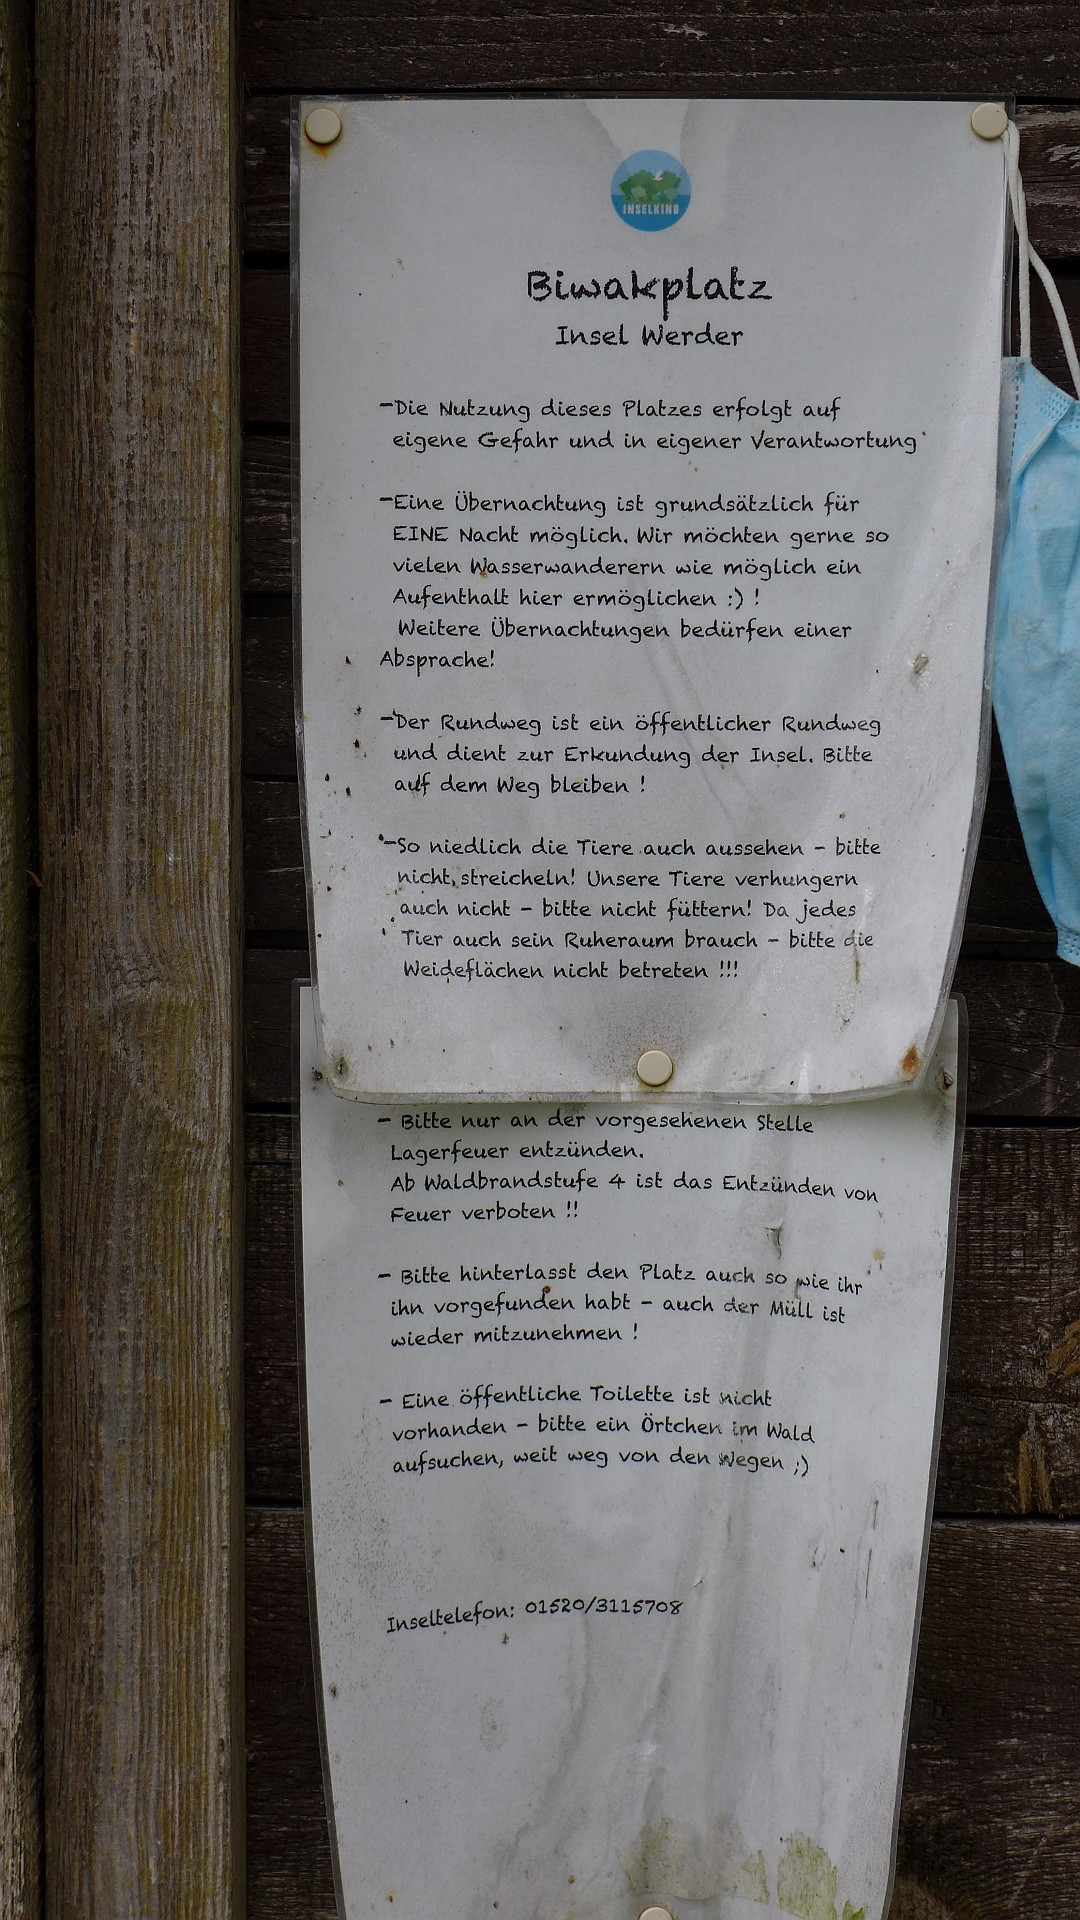 INSELKIND
Biwakplatz
Insel Werder
-Die Nutzung dieses Platzes erfolgt auf
eigene Gefahr und in eigener Verantwortung
-Eine Übernachtung ist grundsätzlich für
EINE Nacht möglich. Wir möchten gerne so
vielen Wasserwanderern wie möglich ein
Aufenthalt hier ermöglichen :) !
Weitere Übernachtungen bedürfen einer
Absprache!
-Der Rundweg ist ein öffentlicher Rundweg
und dient zur Erkundung der Insel. Bitte
auf dem Weg bleiben !
-So niedlich die Tiere auch aussehen - bitte
nicht streicheln! Unsere Tiere verhungern
auch nicht - bitte nicht füttern! Da jedes
Tier auch sein Ruheraum brauch - bitte die
Weideflächen nicht betreten !!!
- Bitte nur an der vorgesehenen Stelle
Lagerfeuer entzünden.
Ab Waldbrandstufe 4 ist das Entzünden von
Feuer verboten !!
- Bitte hinterlasst den Platz auch so wie ihr
ihn vorgefunden habt - auch der Müll ist
wieder mitzunehmen !
- Eine öffentliche Toilette ist nicht
vorhanden - bitte ein Örtchen im Wald
aufsuchen, weit weg von den Wegen ;)
Inseltelefon: 01520/3115708